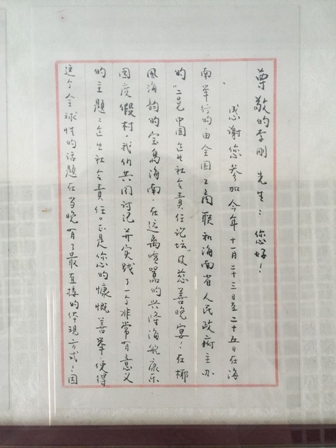 尊敬的李刚先生：您好！
感谢您参加今年十一月二十三日至二十五日在海
南举行的由全国工商联和海南省人民政府主办
的“二〇一〇中国企业社会责任论坛及慈善晚宴”。在椰
风海韵的宝岛海南，在远离喧嚣的兴隆海航康乐
园度假村，我们共同讨论并实践了一个非常有意义
的主题：企业社会责任。正是您的慷慨善举使得
这个全球性的话题在当晚有了最直接的体现方式；因